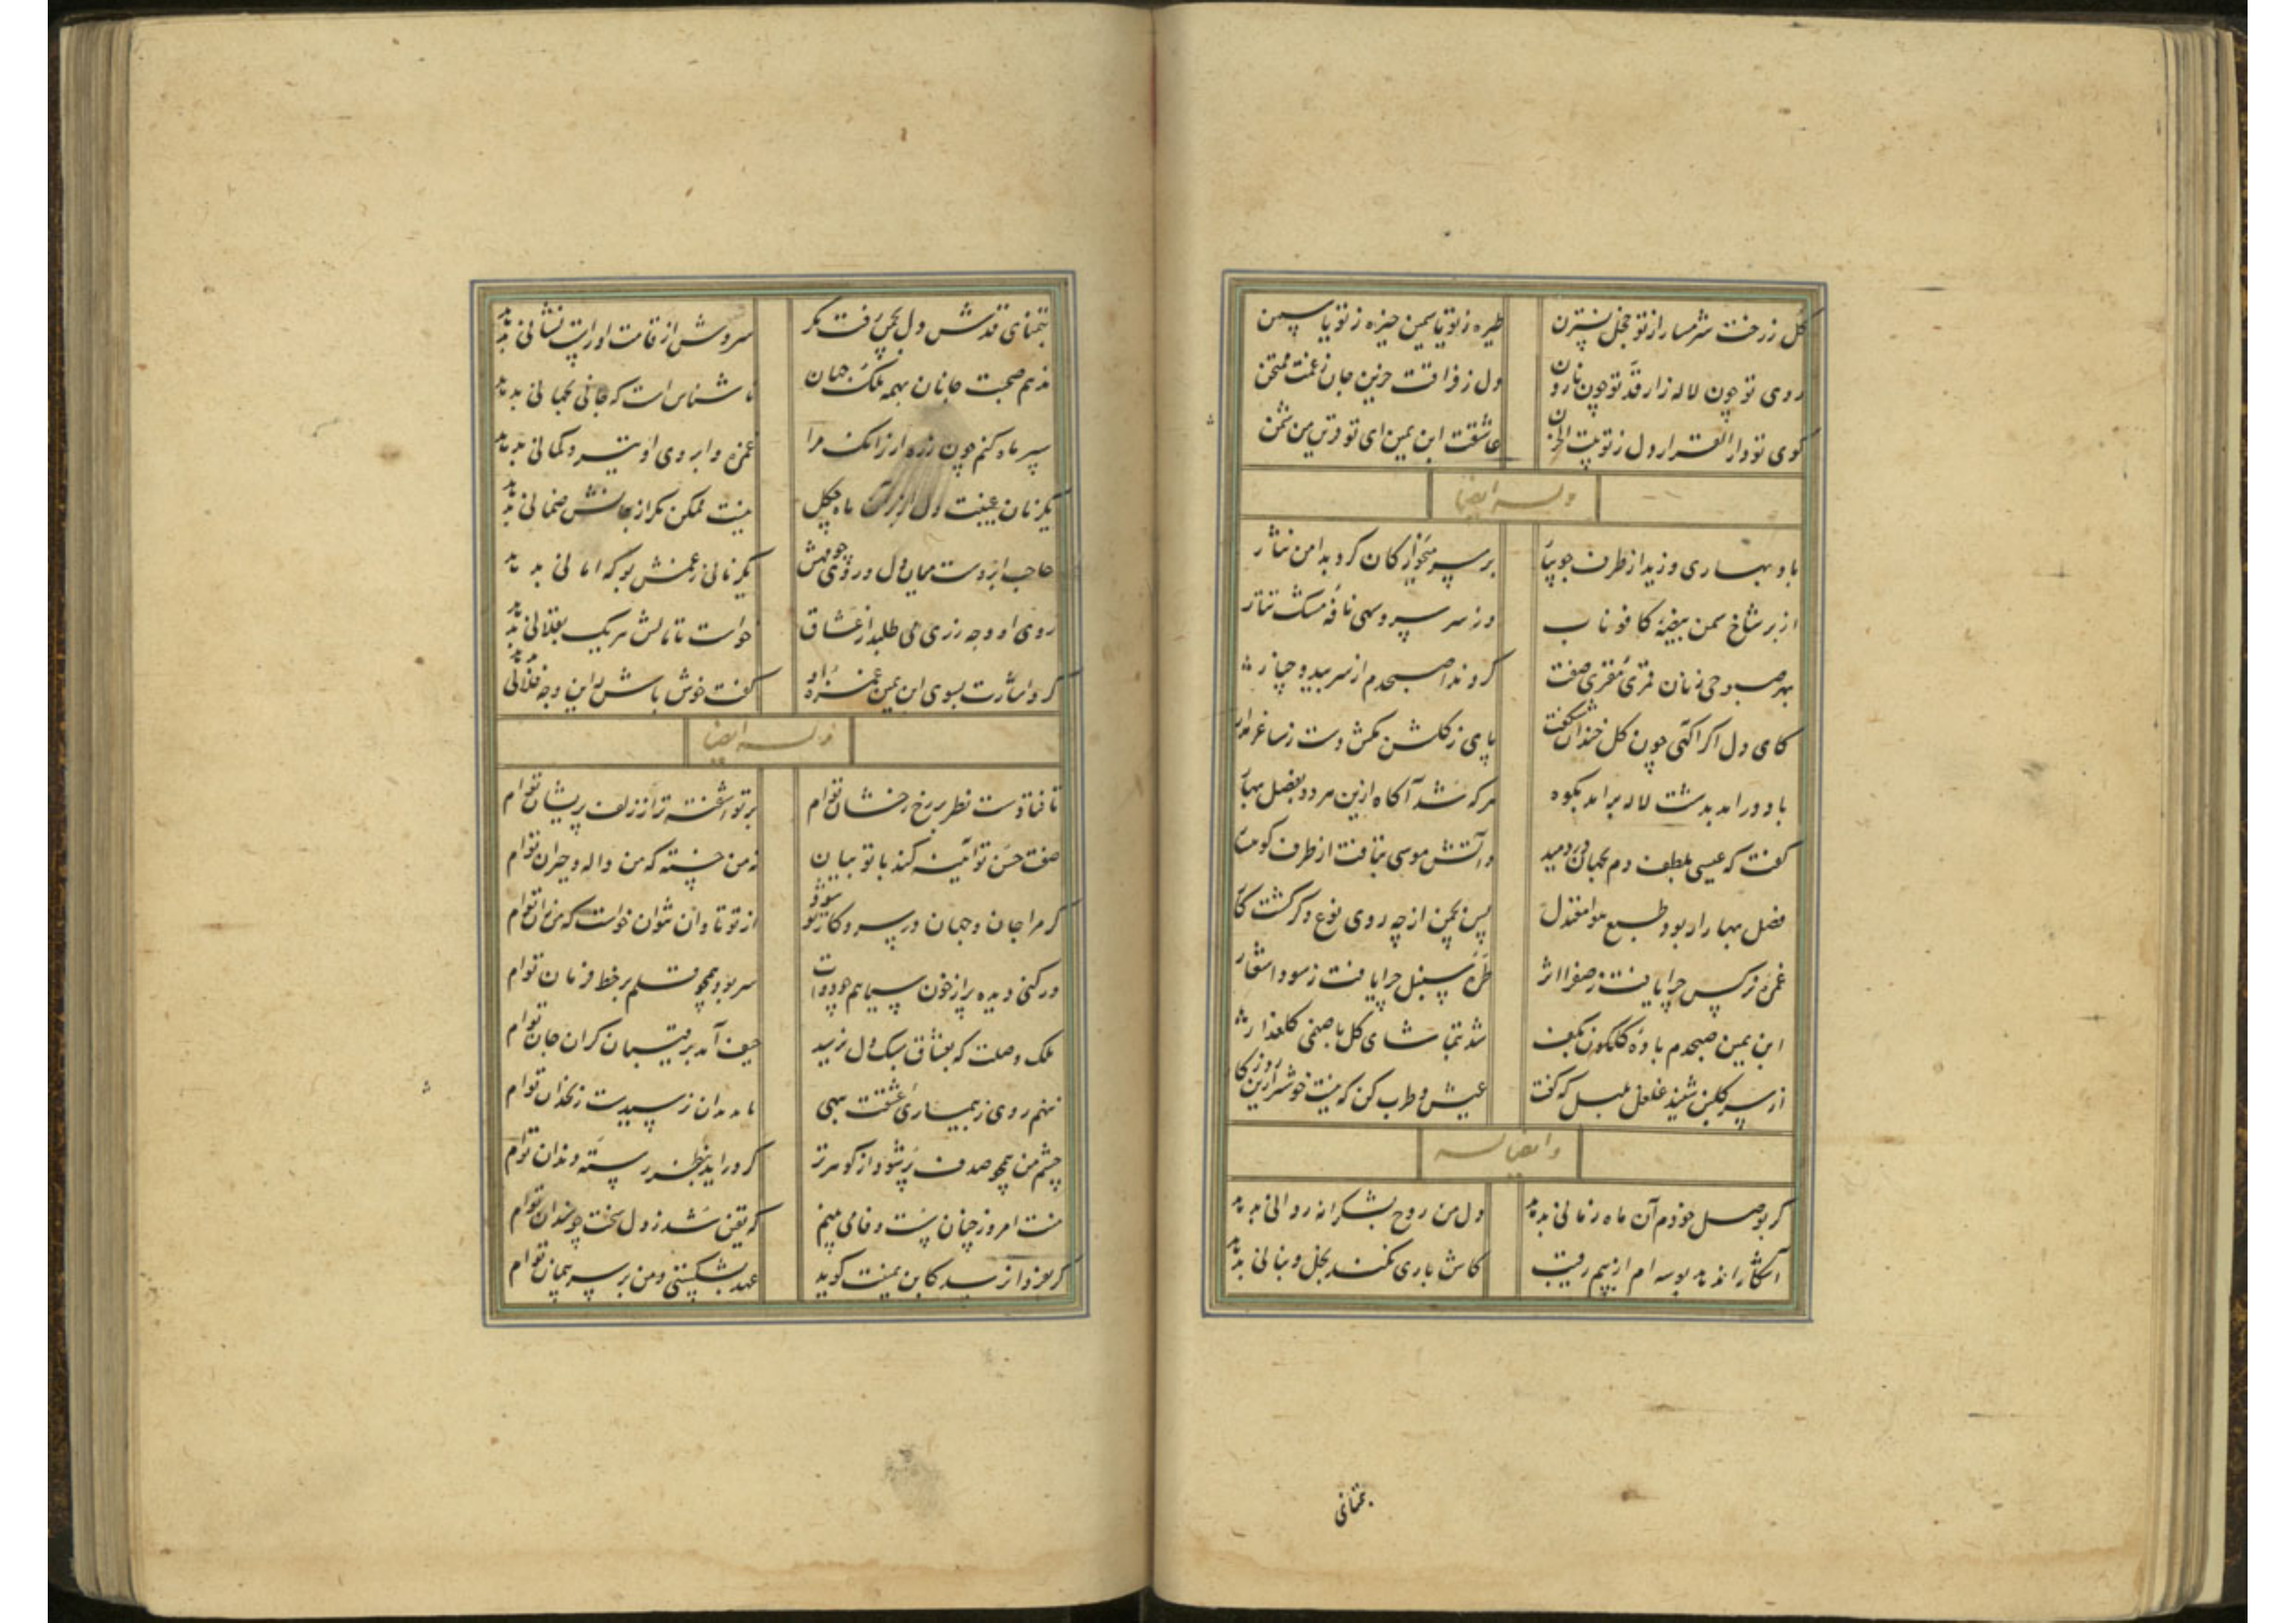 گل ز رخت شرمسار از تو خجل نسترن طیره ز تو یاسمین خیره ز تو یاسمن
روی تو چون لاله زار قد تو چون نارون دل ز فراقت حزین جان ز غمت ممتحن
کوی تو دار القرار دل ز تو بیت الحزن عاشقت ابن یمین ای تو وثن من شمن
وله ایضا
باد بهاری وزید از طرف جویبار بر سر کان کرد بدامن نثار
از بر شاخ سمن بیضهٔ کافور ناب وز سر سرو سهی نافهٔ مشک تتار
بهر صبوحی زنان قمری مقری صفت کرد ندا صبحدم از سر بید و چنار
کای دل اگر آگهی چون گل خندان شکفت پای ز گلشن مکش دست ز ساغر مدار
باد در آمد بدشت لاله بر آمد بکوه هر که شد آگاه ازین مر در بفصل بهار
گفت که عیسی بلطف دم بجهان در دمید وآتش موسی بتافت از طرف کوهسار
فصل بهار ار بود طبع هوا معتدل پس بچمن از چه روی نوع دگر گشت کار
غمزهٔ نرگس چرا یافت ز صفرا اثر طرهٔ سنبل چرا یافت ز سودا شعار
ابن یمین صبحدم بادهٔ گلگون بکف شد بتماشای گل با صنمی گلعذار
از سر گلبن شنید غلغل بلبل که گفت عیش و طرب کن که نیست خوشتر ازین روزگار
وایضا له
گر بوصل خودم آن ماه زمانی بدهد دل من روح بشکرانه روانی بدهد
آشکارا ندهد بوسه ام از بیم رقیب کاش باری نکند بخل و نهانی بدهد
بتمنای
بتمنای قدش دل بچمن رفت مگر سروش از قامت او راست نشانی بدهد
ندهم صحبت جانان بهمه ملک جهان ناشناس است که جانی بجهانی بدهد
سپر ماه کنم چون زره ار زانک مرا غمزه و ابروی او تیر و کمانی بدهد
یکزمان غیبت دل از بر ماه چگل نیست ممکن مگر از جانش ضمانی بدهد
حاجب ار دوست میان دل و روی چو مهش یکزمانی ز غمش بو که امانی بدهد
روی او وجه زری می طلبد از عشاق خواست تا مالش هر یک بفلانی بدهد
کرد اشارت بسوی ابن یمین غمزهٔ او گفت خوش باش این وجه فلانی بدهد
وله ایضا
تا فتادست نظر بر رخ رخشان توام بر تو آشفته تر از زلف پریشان توام
صفت حسن تو آیینه کند با تو بیان نه من خسته که من واله و حیران توام
گر مرا جان و جهان در سر و کار تو شود از تو تاوان نتوان خواست که من زان توام
ور کنی دیده پر از خون سیاهم چو دوات سر بود همچو قلم بر خط فرمان توام
ملک وصلت که بعشاق سبک دل نرسید حیف آمد برقیبان گران جان توام
ننهم روی ز بیماری عشقت ببهی تا بدندان نرسد سیب زنخدان توام
چشم من همچو صدف پر شود از گوهر تر گر در آید بنظر رستهٔ دندان توام
منت امروز چنان سست وفا می بینم که یقین شد ز دل سخت چو سندان توام
عهد بشکستی و من بر سر پیمان توام